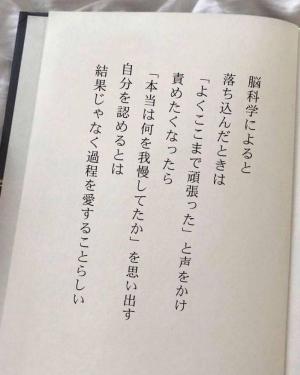 脳科学によると
落ち込んだときは
「よくここまで頑張った」と声をかけ
責めたくなったら
「本当は何を我慢してたか」を思い出す
自分を認めるとは
結果じゃなく過程を愛することらしい